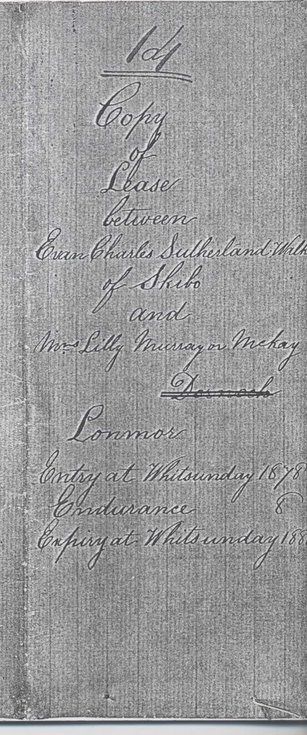 1d/
Copy
of
Lease
between
Evan Charles Sutherland Walk
of Skibo
and
Mrs Lilly Murray or Mckay
Dornoch
Lonmor
Entry at Whitsunday 1878
Endurance 8
Expiry at Whitsunday 188